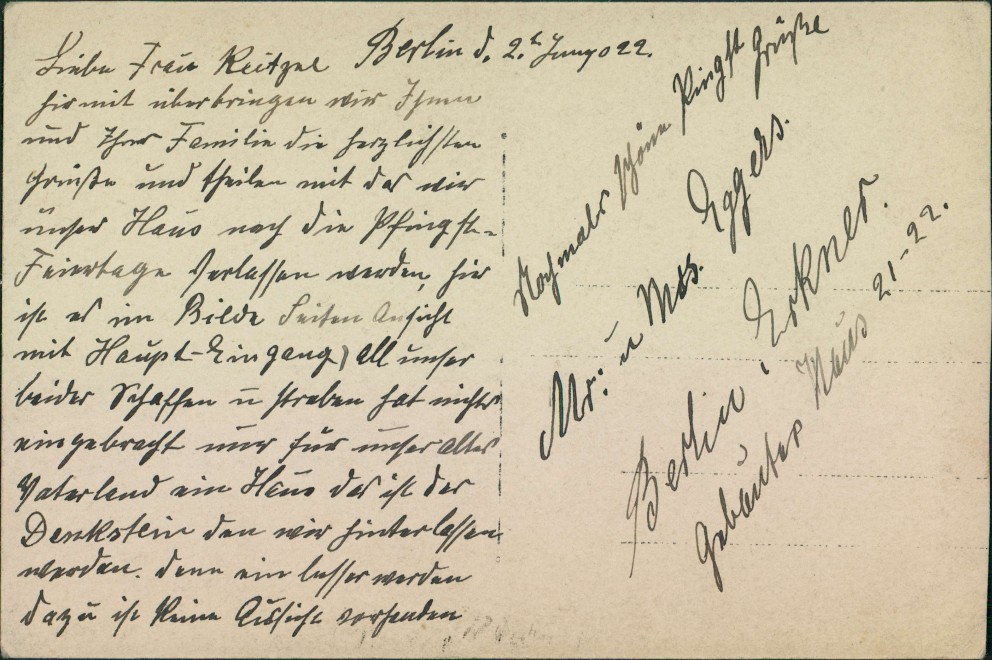 Liebe Frau Reitzel Berlin d. 2.t Juny 022.
hirmit überbringen wir Ihnen
und Ihrer Familie die herzlichsten
Grüße und theilen mit das wir
unser Haus nach die Pfingst-
Feiertage Verlassen werden, hir
ist es im Bilde Seiten Ansicht
mit Haupt-Eingang) All unser
beider Schaffen u streben hat nichts
eingebracht nur für unser altes
Vaterland ein Haus das ist der
Denkstein den wir hinterlassen
werden. denn ein besser werden
dazu ist keine Aussicht vorhanden
Nochmals schöne Pfingst Grüße
Mr: u Mds. Eggers.
Berlin, Erkner.
Gebautes Haus 21-22.